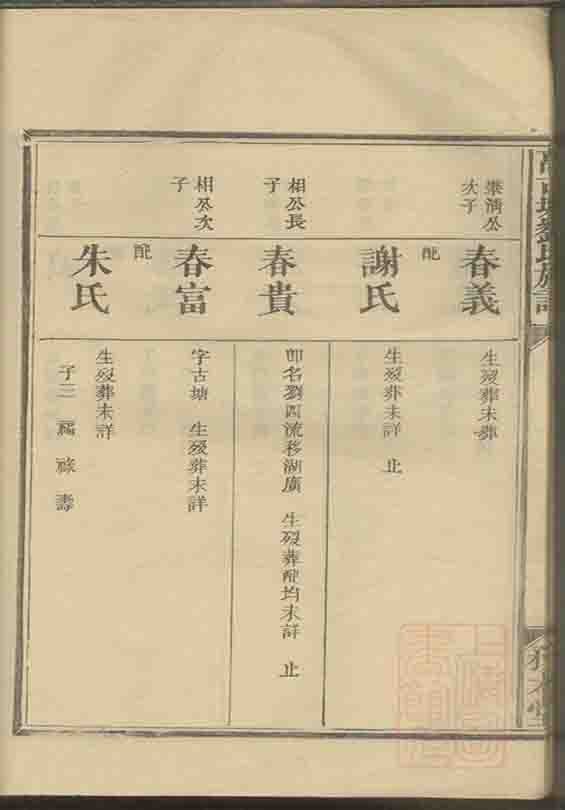 劉氏族譜
崇清公
次子
春義
生歿葬未葬
配
謝氏
生歿葬未詳 止
相公長
子
春貴
即名劉四流移湖廣 生歿葬配均未詳 止
相公次
子
春富
字古塘 生歿葬未詳
配
朱氏
生歿葬未詳
子三 福 祿 壽